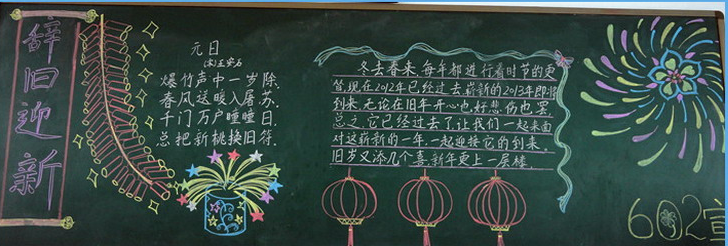 辞旧迎新
元日
(宋)王安石
爆竹声中一岁除.
春风送暖入屠苏.
千门万户曈曈日.
总把新桃换旧符.
冬去春来,每年都进行着时节的更
管,现在2012年已经过去崭新的2013年即将
到来.无论在旧年开心也好悲伤也罢
总之,它已经过去了让我们一起来面
对这崭新的一年.一起迎接它的到来.
旧岁又添几个喜.新年更上一层楼
602宣